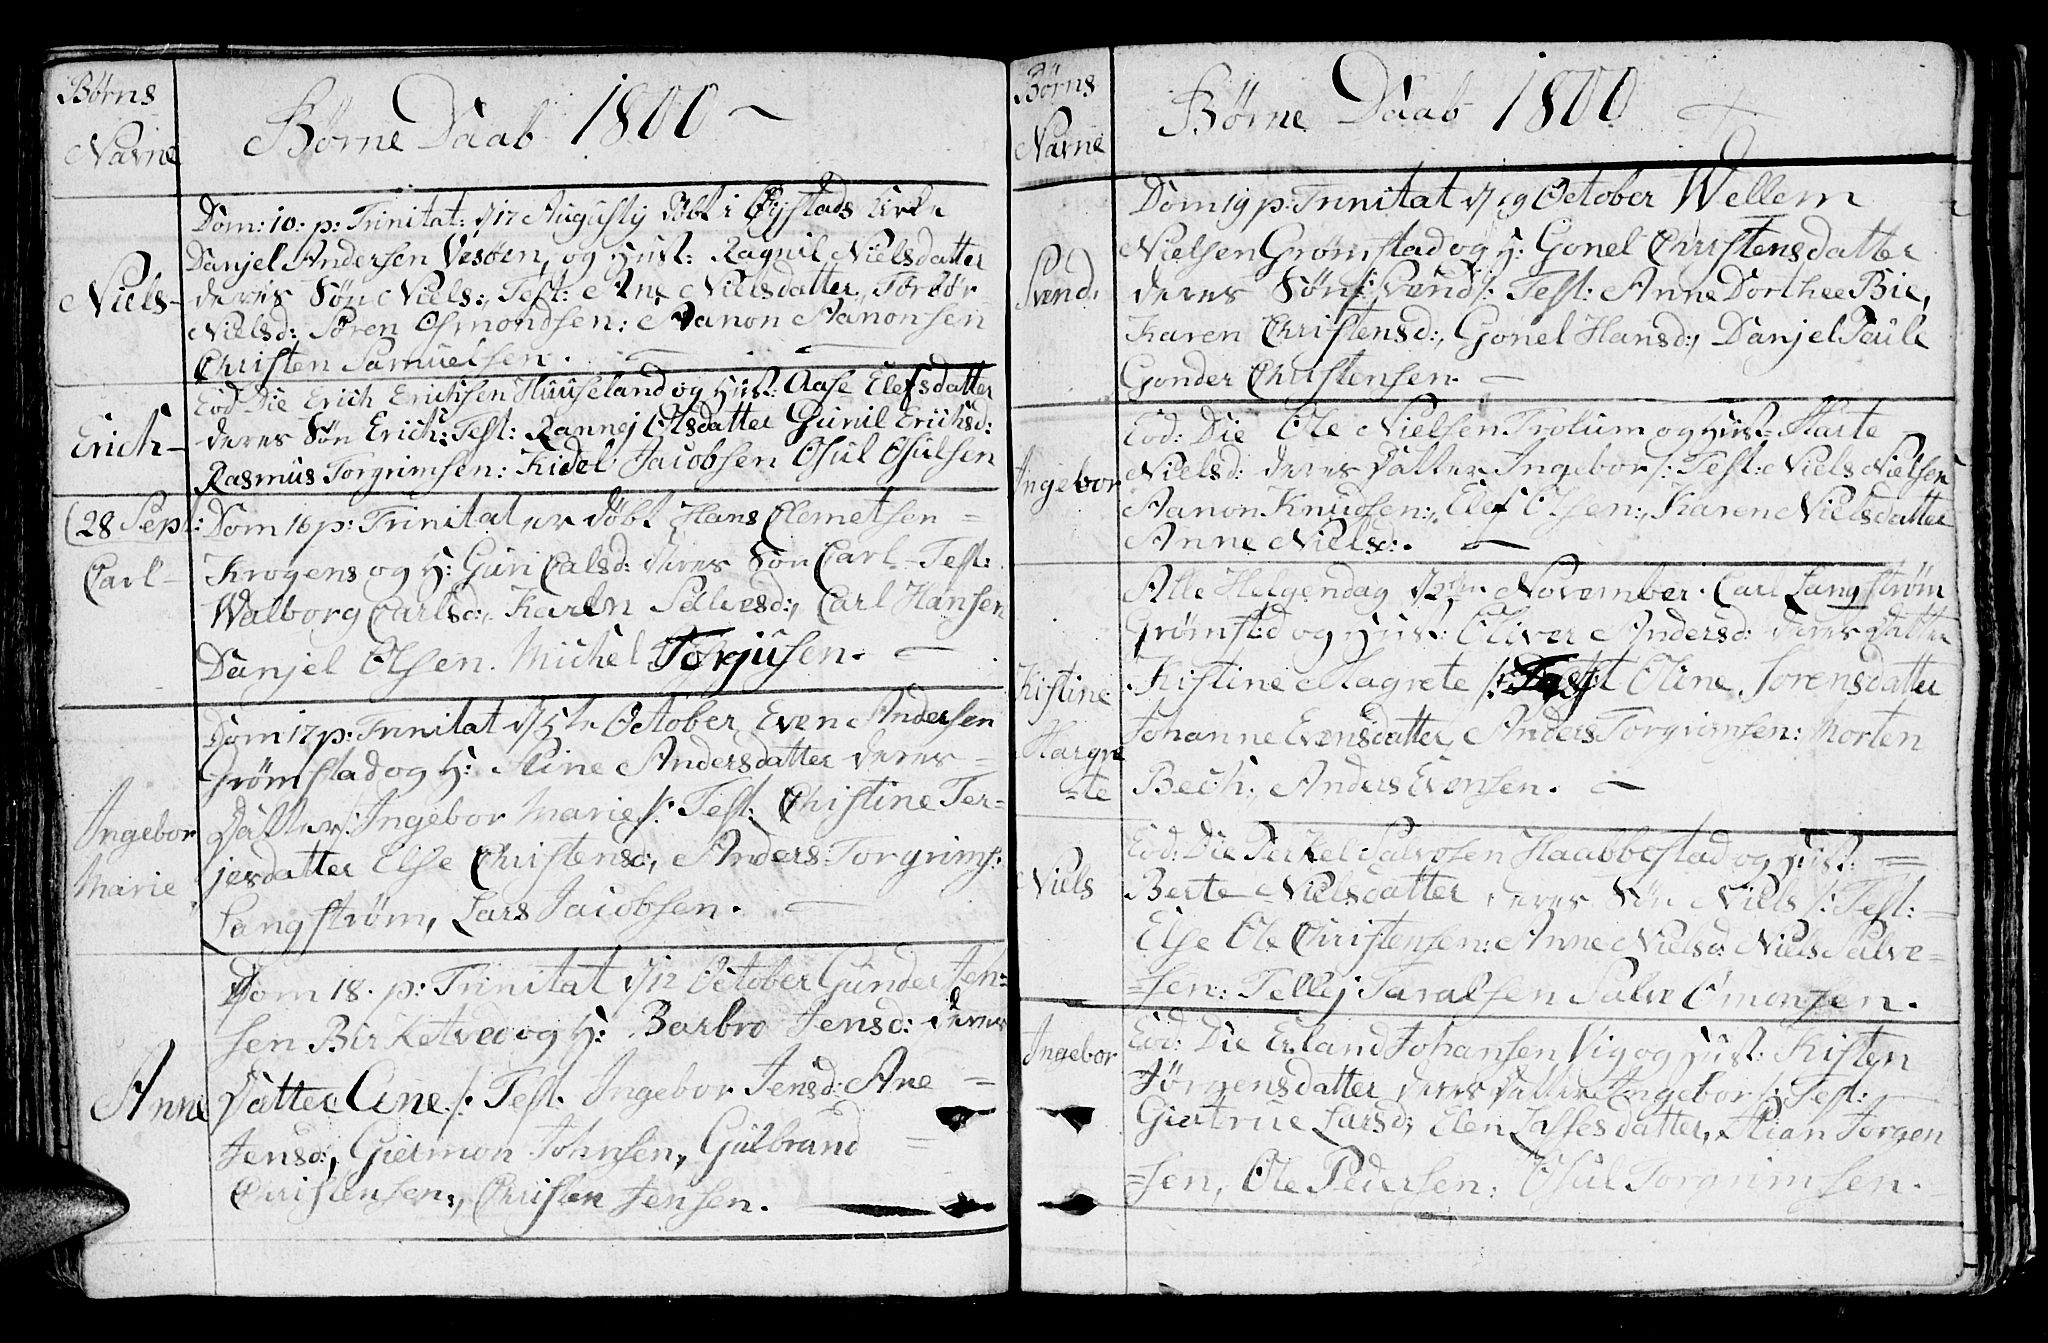 Børns
Navne
Børne Daab 1800
Dom: 10. p: Trinitat: d 17 Augustij døbt i Øystads Kirke
Niels
Danjel Andersen Vesøen, og Hust: Ragnil Nielsdatter
deres Søn Niels:, Test: Ane Nielsdatter, Torbør
Nielsd: Søren Osmondsen: Aanon Aanonsen
Christen Samuelsen.
Erich
Eod Die Erich Erichsen Huuseland og Hust: Aase Elefsdatter
deres Søn Erich: Test: Rannej Olsdatter Gunil Erichsd:
Rasmus Torgrimsen: Kidel Jacobsen Osul Osulsen
(28 Sept:
Carl
Dom 16 p: Trinitat er døbt Hans Clemetsen
Krogens og H: Guri Calsd: deres Søn Carl Test:
Walborg Carlsd:, Karen Salvesd:, Carl Hansen
Danjel Olsen. Michel Torgiusen.
Ingebor
Marie
Dom 17 p: Trinitat d 5te October Even Andersen
Grømstad og H: Stine Andersdatter deres
Datter /: Ingebor Marie /: Test: Christine Ter-
jesdatter Else Christensd:, Anders Torgrims:
Langstrøm, Lars Jacobsen.
Anne
Dom 18. p: Trinitat d 12 October Gunder Jen-
sen Birketved og H: Barbro Jensd: deres
Datter Ane /: Test. Ingebor Jensd: Ane
Jensd:, Giermon Johnsen, Gulbrand
Christensen:, Christen Jensen.
Børns
Navne
Børne Daab 1800
Svend.
Dom 19 p: Trinitat d 19 October Wellem
Nielsen Grømstad og H: Gonel Christensdatter
deres Søn /: Svend /: Test: Anne Dorthee Bie,
Karen Christensd:, Gonel Hansd:, Danjel Paule
Gonder Christensen.
Ingebor
Eod: Die Ole Nielsen Trolum og Hust: Marte
Nielsd: deres Datter Ingebor /: Test: Niels Nielsen
Aanon Knudsen:, Elef Olsen:, Karen Nielsdatter
Anne Nielsd:.
Kistine
Margre
-te
Alle Helgendag d 2den November. Carl Langstrøm
Grømstad og Hust: Oliver Andersd: deres Datter
Kistine Magrete /: Test Oline Sorensdatter
Johanne Evensdatter, Anders Torgrimsen: Morten
Bech:, Anders Evensen.
Niels
Eod: Die Terkel Salvesen Haabbestad og Hust:
Berte Nielsdatter deres Søn Niels /: Test:
Else Ole Christensen: Anne Nielsd: Niels Salve-
-sen: Tellej Taralsen Salve Omonsen.
Ingebor
Eod: Die Erland Johansen Vig og Hust: Kisten
Jørgensdatter deres Datter Ingebor /: Test:
Giertrue Larsd:, Elen Lassesdatter, Stian Jorgen
-sen, Ole Pedersen: Osul Torgrimsen.